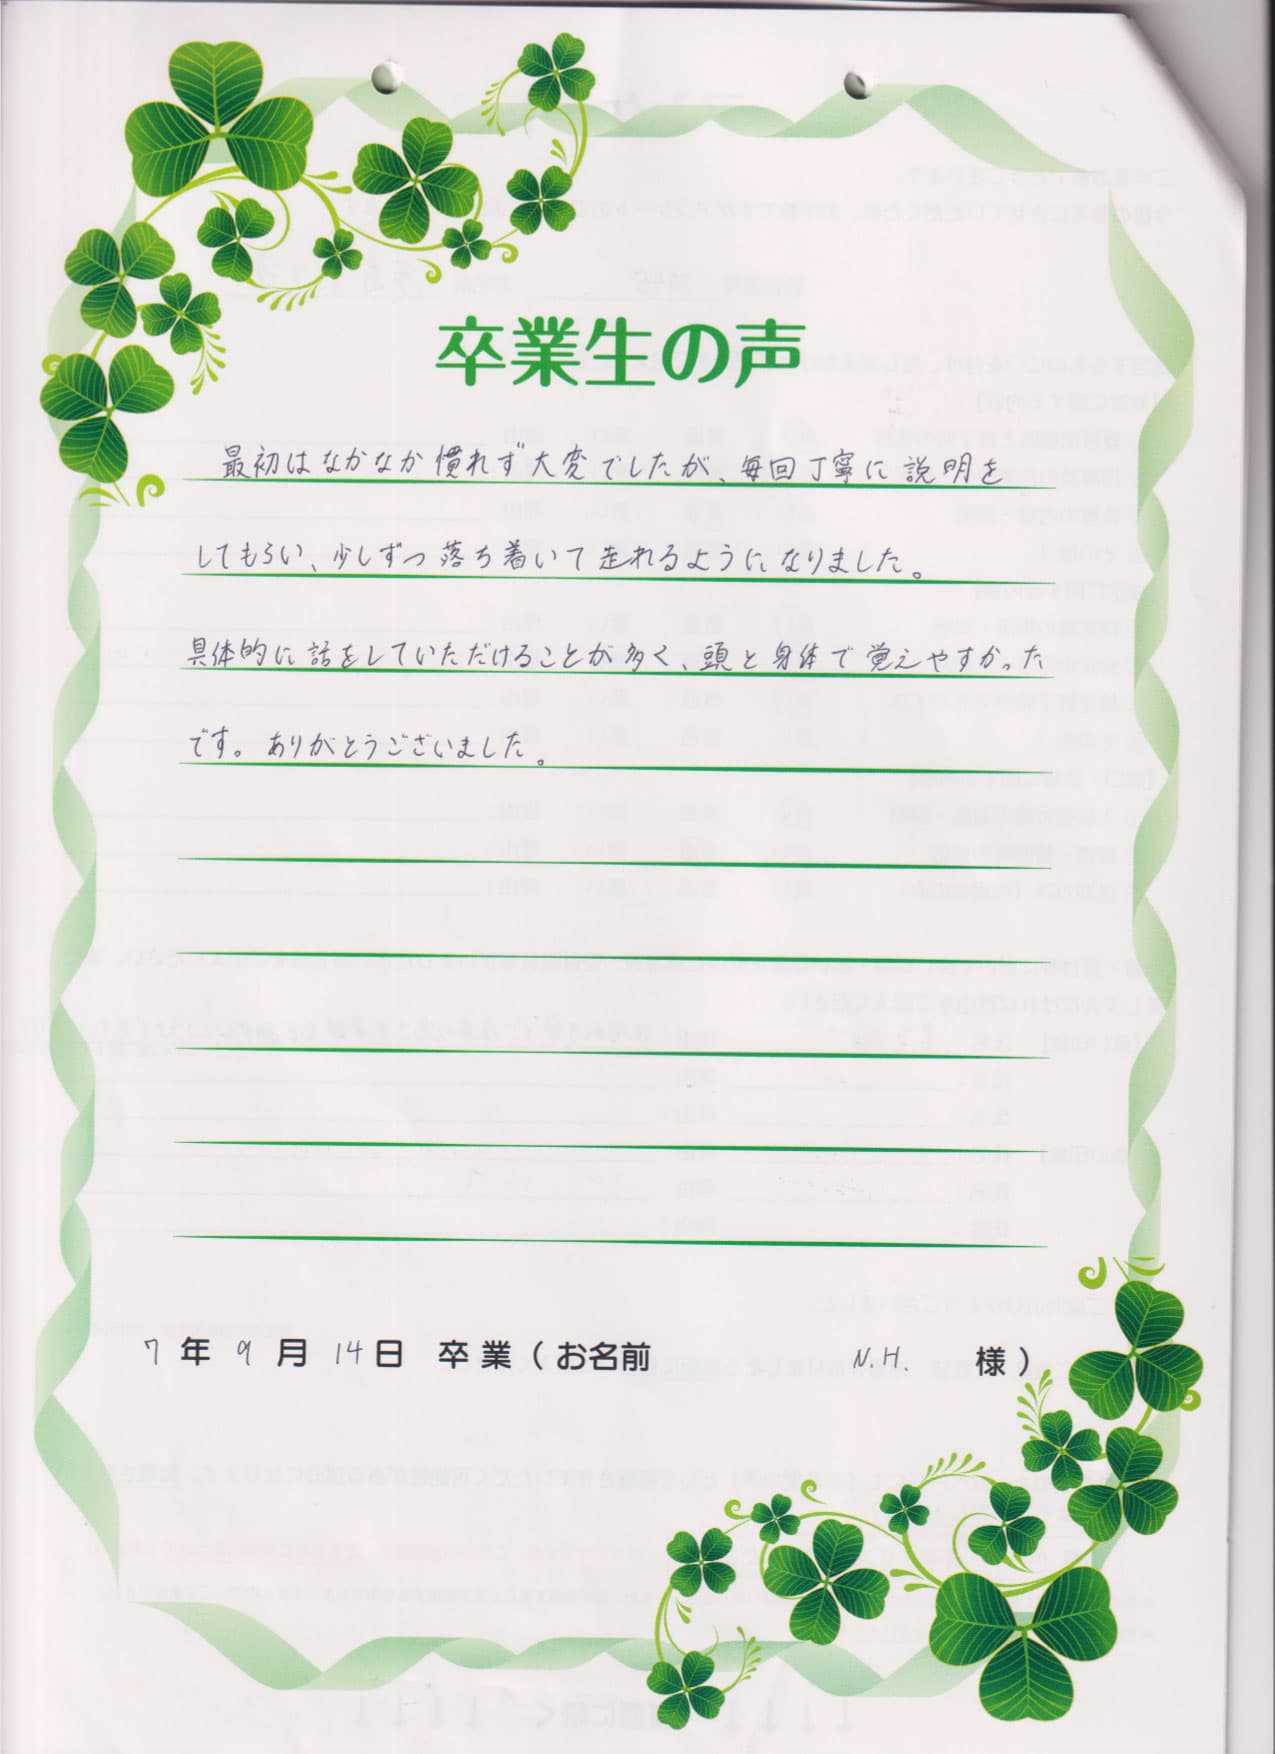 卒業生の声
最初はなかなか慣れず大変でしたが、毎回丁寧に説明を
してもらい、少しずつ落ち着いて走れるようになりました。
具体的に話をしていただけることが多く、頭と身体で覚えやすかった
です。ありがとうございました。
7年9月14日 卒業(お名前 N.H. 様)